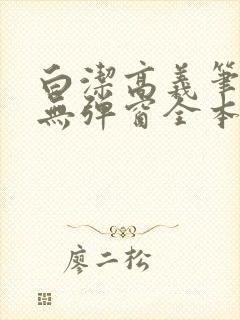 白潔高義筆
無彈窗全本
廖二松